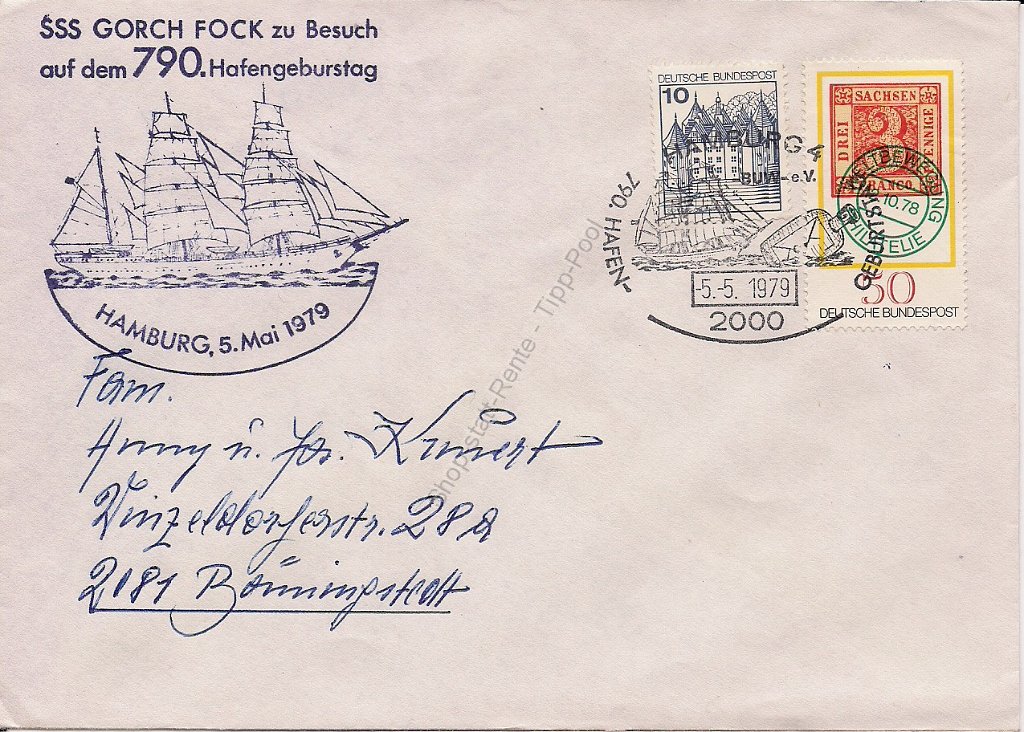 SSS GORCH FOCK zu Besuch
auf dem 790. Hafengeburstag
HAMBURG, 5. Mai 1979
DEUTSCHE BUNDESPOST
10
HAMBURG 4
-BUW- e.V.
790. HAFEN-
GEBURTSTAG
-5.-5. 1979
2000
SACHSEN
DREI
3
PFENNIGE
FRANCO
WELTBEWEGUNG
10.78
PHILATELIE
50
DEUTSCHE BUNDESPOST
Fam.
Anny u. Js. Kunert
Winzeldorferstr. 28a
2081 Bönningstedt
Shopstatt-Rente - Tipp-Pool